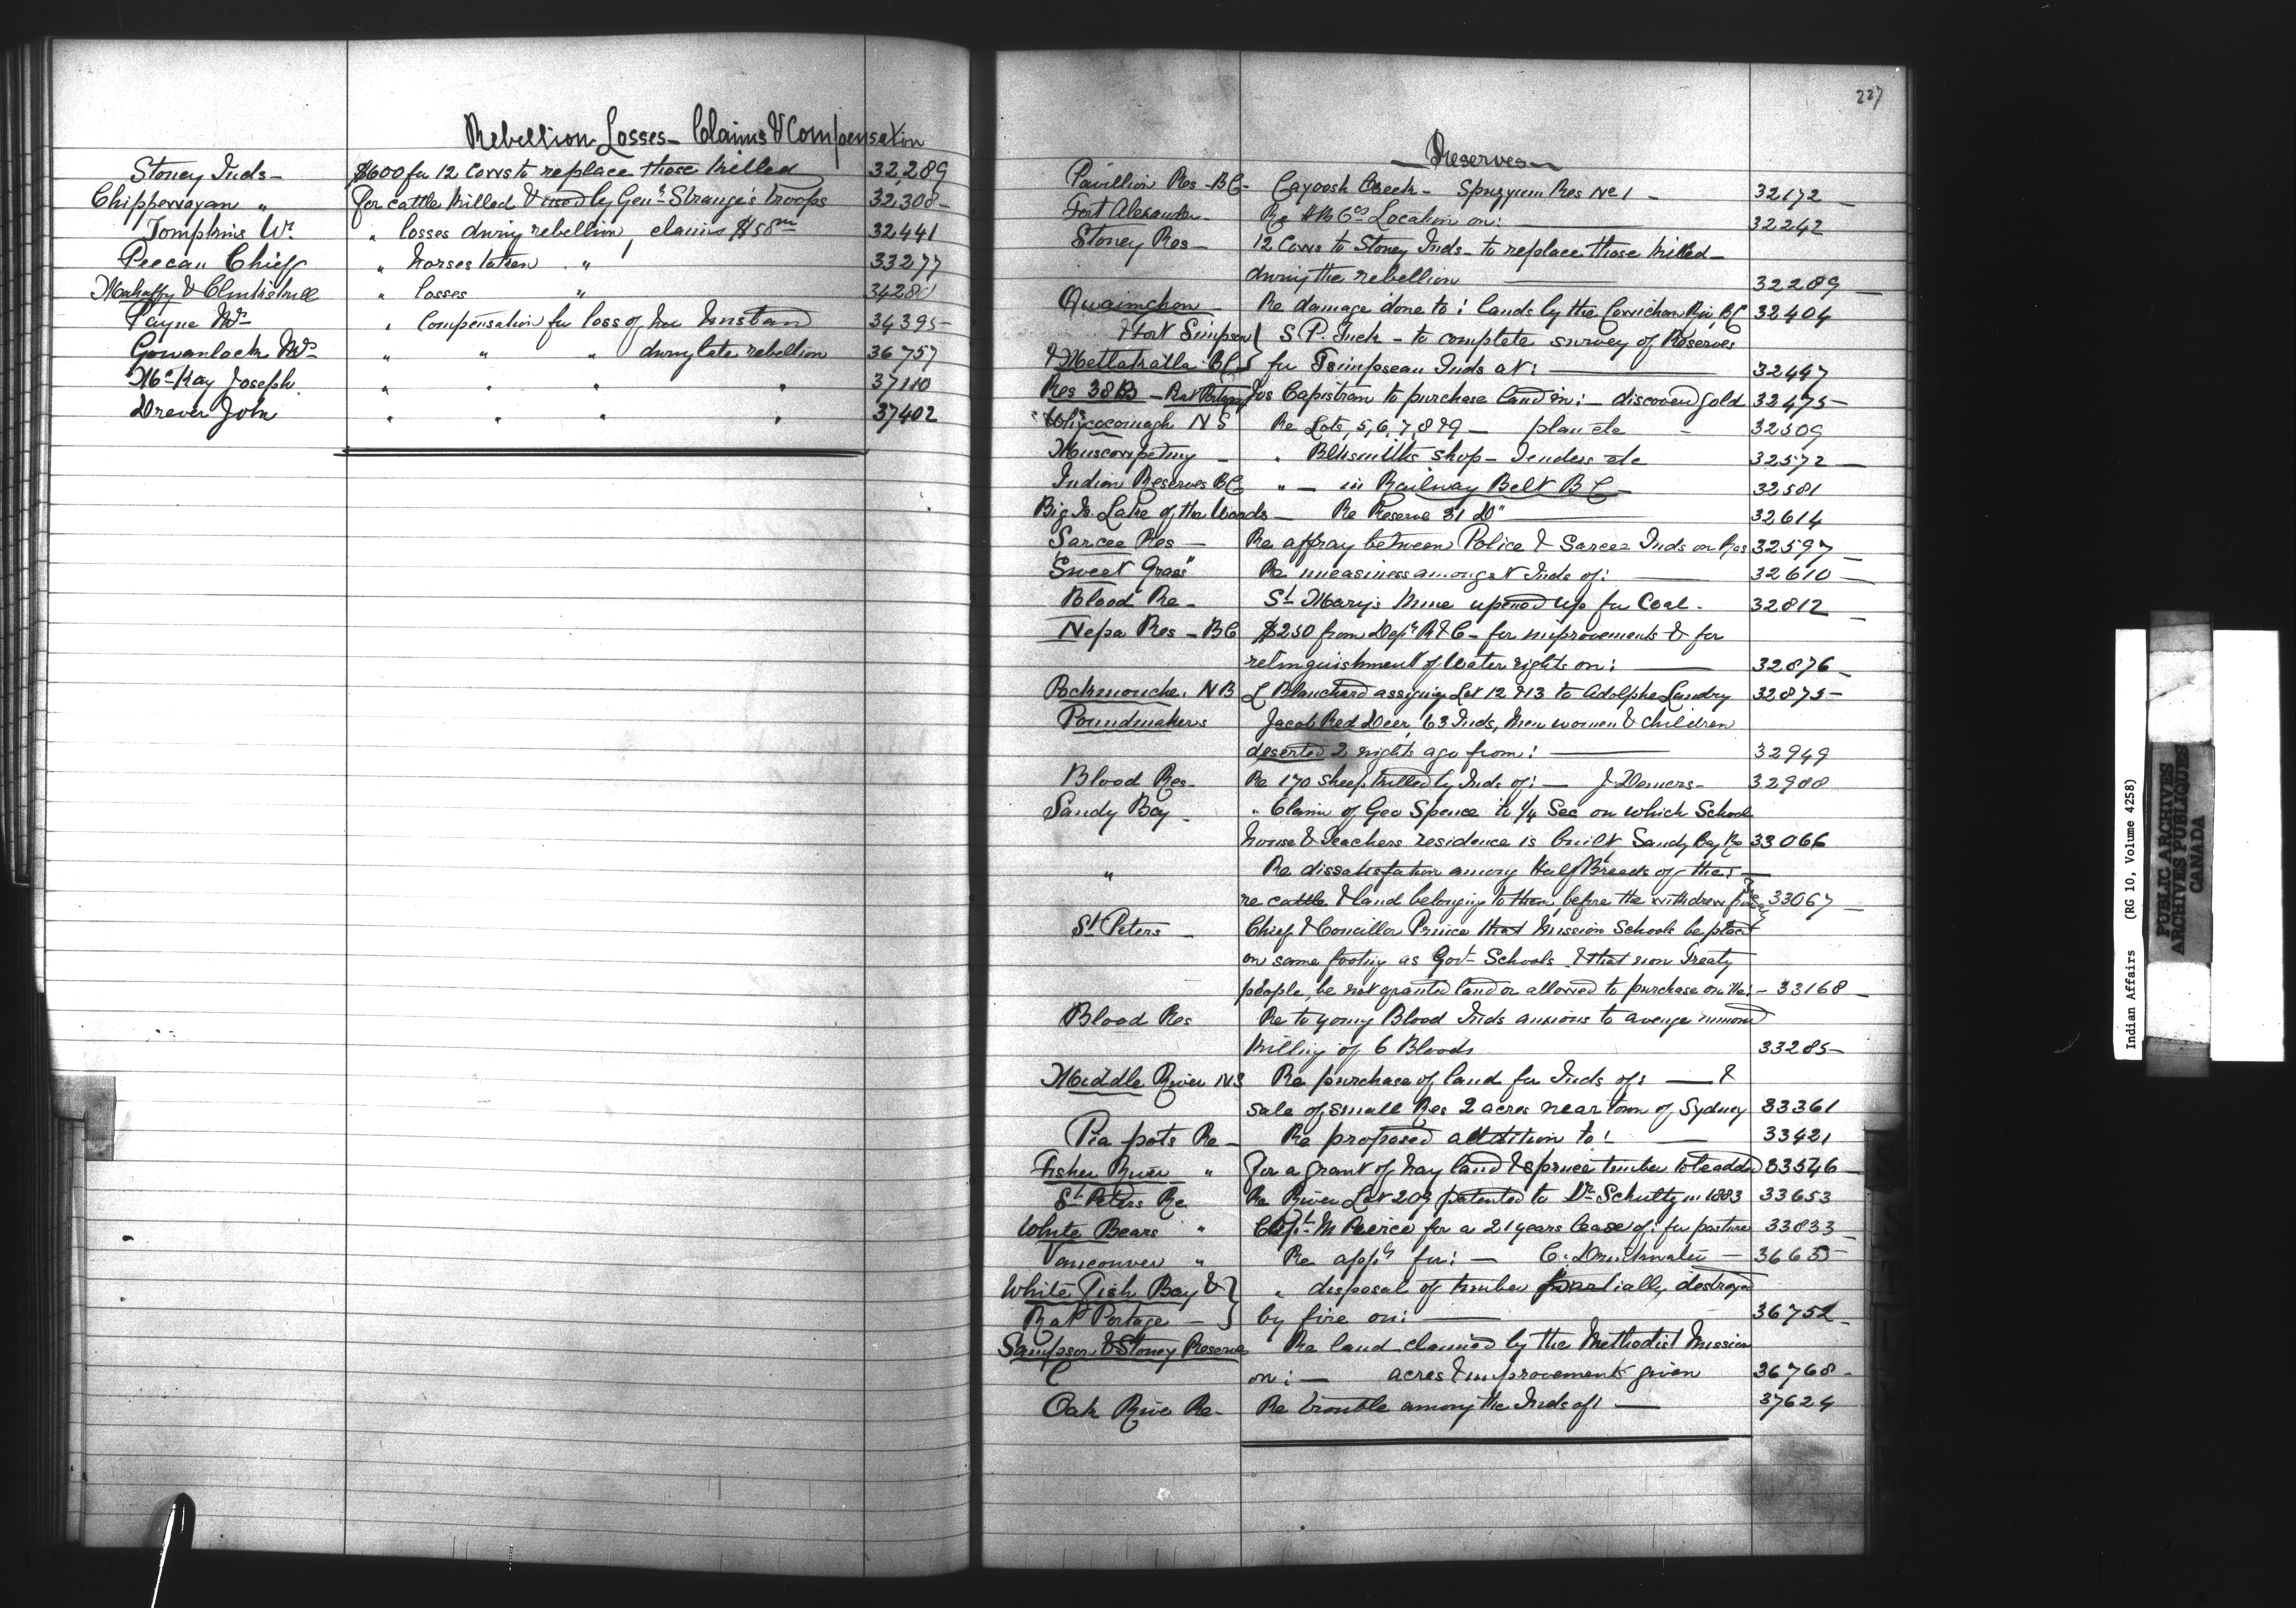 Rebellion Losses - Claims & Compensation
Stoney Inds - $600 for 12 Cows to replace those killed 32,289
Chippewayan " for cattle killed & used by Genl Strange's troops 32,308-
Tompkins Wm " losses during rebellion, claims $58 32441
Peecan Chief " horses taken " 33277
Mahaffy & Clinkskill " losses " 34280
Payne Mrs " Compensation for loss of her husband 34395-
Gowanlock Mrs " " " during late rebellion 36757
McKay Joseph " " " " 37110
Drever John " " " " 37402
227
Reserves
Pavillion Res - BC - Cayoosh Creek - Spuzzum Res No 1 - 32172
Fort Alexander - Re HB Cos Location on: 32242
Stoney Res - 12 Cows to Stoney Inds - to replace those killed -
during the rebellion 32289
Quamichan Re damage done to: lands by the Cowichan Riv BC 32404
& Fort Simpson } S. P. Tuck - to complete survey of Reserves
& Metlakatla BC } for Tsimpsean Inds at: 32447
Res 38B - Rat Portage Jos Capistran to purchase land in: - discovered gold 32475-
Whycocomagh NS Re Lots, 5, 6, 7, 8 & 9 - plan etc - 32509
Muscowpetung - " Blksmiths shop - Tenders etc 32572
Indian Reserves BC " - in Railway Belt BC - 32581
Big Is. Lake of the Woods - Re Reserve 31 D" 32614
Sarcee Res - Re affray between Police & Sarcee Inds on Res 32597
Sweet Grass " Re uneasiness amongst Inds of: 32610
Blood Re - St Mary's Mine opened up for Coal. 32812
Nepa Res - BC $250 from Dept R & C - for improvements & for
relinquishment of water rights on: 32876
Pockmouche, NB L Blanchard assigning Lot 12 & 13 to Adolphe Landry 32875-
Poundmakers Jacob Red Deer, 63 Inds, Men women & children
deserted 2 nights ago from: 32949
Blood Res - Re 170 sheep killed by Inds of: - J. Demers - 32988
Sandy Bay - " Claim of Geo Spence to 1/4 Sec on which School
house & Teachers residence is built Sandy Bay Re 33066
" Re dissatisfation among Half Breeds of the:
re cattle & land belonging to them, before the withdrew from 33067
St Peters - Chief & Concillor Prince that Mission Schools be placed
on same footing as Govt Schools & that non Treaty
people, be not granted land or allowed to purchase on the: - 33168
Blood Res Re to young Blood Inds anxious to avenge
killing of 6 Bloods 33285-
Middle River NS Re purchase of land for Inds of: - &
sale of small Res 2 acres near town of Sydney 33361
Pia pots Re - Re proposed addition to: 33421
Fisher River " for a grant of hay land & spruce timber to be added 33546
St Peters Re Re River Lot 209 patented to Dr Schultz in 1883 33653
White Bears " Capt M Peirce for a 21 years lease of: for pasture 33833
Vancouver " Re appn for: - C. Drinkwater - 36635-
White Fish Bay & } " disposal of timber partially destroyed
Rat Portage - } by fire on: 36752
Sampson & Stoney Reserve Re land claimed by the Methodist Mission
on: - acres & improvements given 36768-
Oak River Re - Re trouble among the Inds of: 37624
Indian Affairs (RG 10, Volume 4258)
PUBLIC ARCHIVES
ARCHIVES PUBLIQUES
CANADA